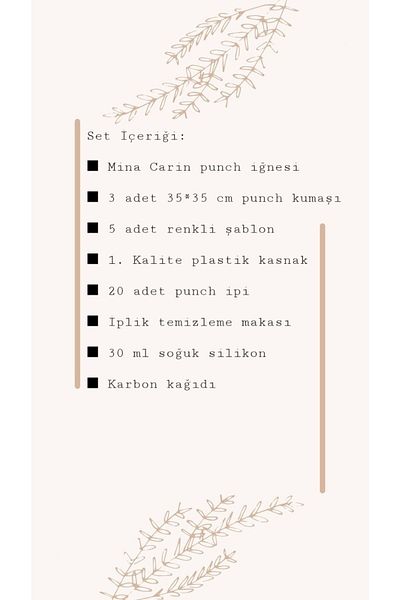 Set Içeriği:
■ Mina Carin punch iğnesi
■ 3 adet 35*35 cm punch kumaşı
■ 5 adet renkli şablon
■ 1. Kalite plastik kasnak
■ 20 adet punch ipi
■ Iplik temizleme makası
■ 30 ml soğuk silikon
■ Karbon kağıdı